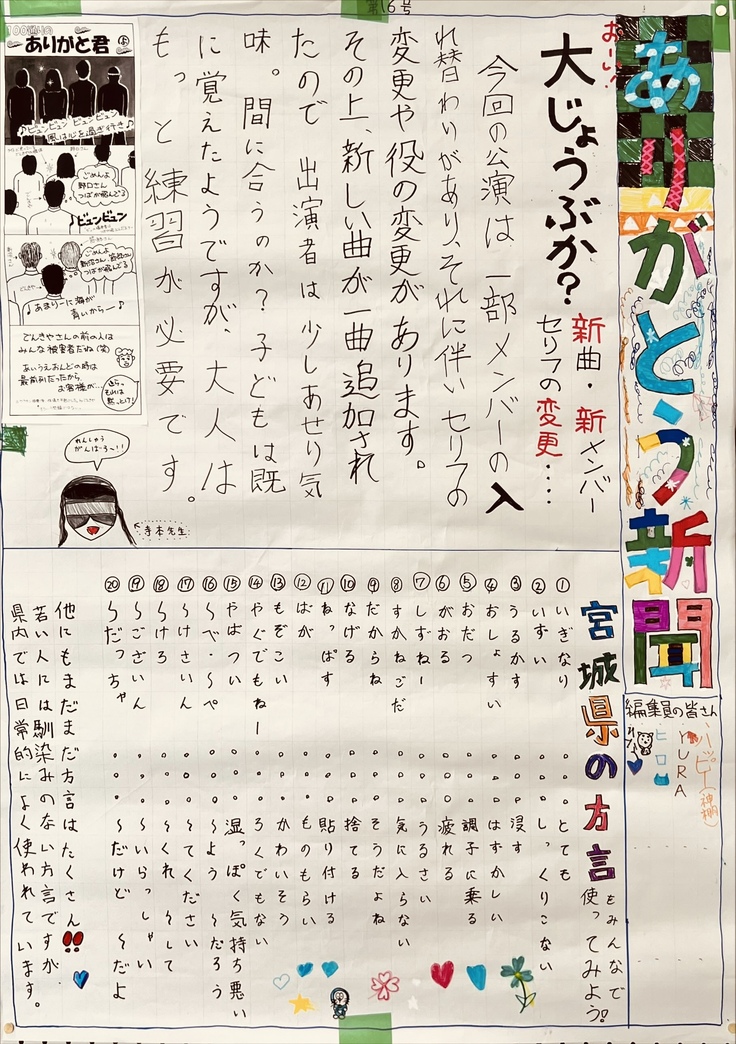 第16号
ありがとう新聞
おーい!
大じょうぶか?
新曲・新メンバー
セリフの変更‥‥
今回の公演は一部メンバーの入
れ替わりがあり、それに伴いセリフの
変更や役の変更があります。
その上、新しい曲が一曲追加され
たので 出演者は少しあせり気
味。間に合うのか?子どもは既
に覚えたようですが、大人は
もっと練習が必要です。
ありがと君
♪ビュンビュンビュンビュン
風は心を過ぎ行き♪
ごめんよ
野口さん
つばが飛んでる
ビュンビュン
ごめんよ
つばが飛んでる
♪あまりーに海が
青いからー♪
でんきやさんの前の人は
みんな被害者だね(笑)
あいうえおんどの時は
最前列だったから
お客様が…
れんしゅう
がんばろ〜!!
寺本先生
編集員の皆さん
ハッピー(神棚)
YURA
ヒロ
宮城県の方言
をみんなで
使ってみよう!
①いぎなり。。。とても
②いずい。。。しっくりこない
③うるかす。。。浸す
④おしょすい。。。はずかしい
⑤おだつ。。。調子に乗る
⑥がおる。。。疲れる
⑦しずねー。。。うるさい
⑧すかねごだ。。。気に入らない
⑨だからね。。。そうだよね
⑩なげる。。。捨てる
⑪ねっぱす。。。貼り付ける
⑫ばが。。。ものもらい
⑬もぞこい。。。かわいそう
⑭やぐでもねー。。。ろくでもない
⑮やばつい。。。湿っぽく気持ち悪い
⑯〜べ・〜ぺ。。。〜よう 〜だろう
⑰〜けさいん。。。〜てください
⑱〜けろ。。。〜くれ 〜して
⑲〜ございん。。。〜いらっしゃい
⑳〜だっちゃ。。。〜だけど 〜だよ
他にもまだまだ方言はたくさん!!
若い人には馴染みのない方言ですが
県内では日常的によく使われています。